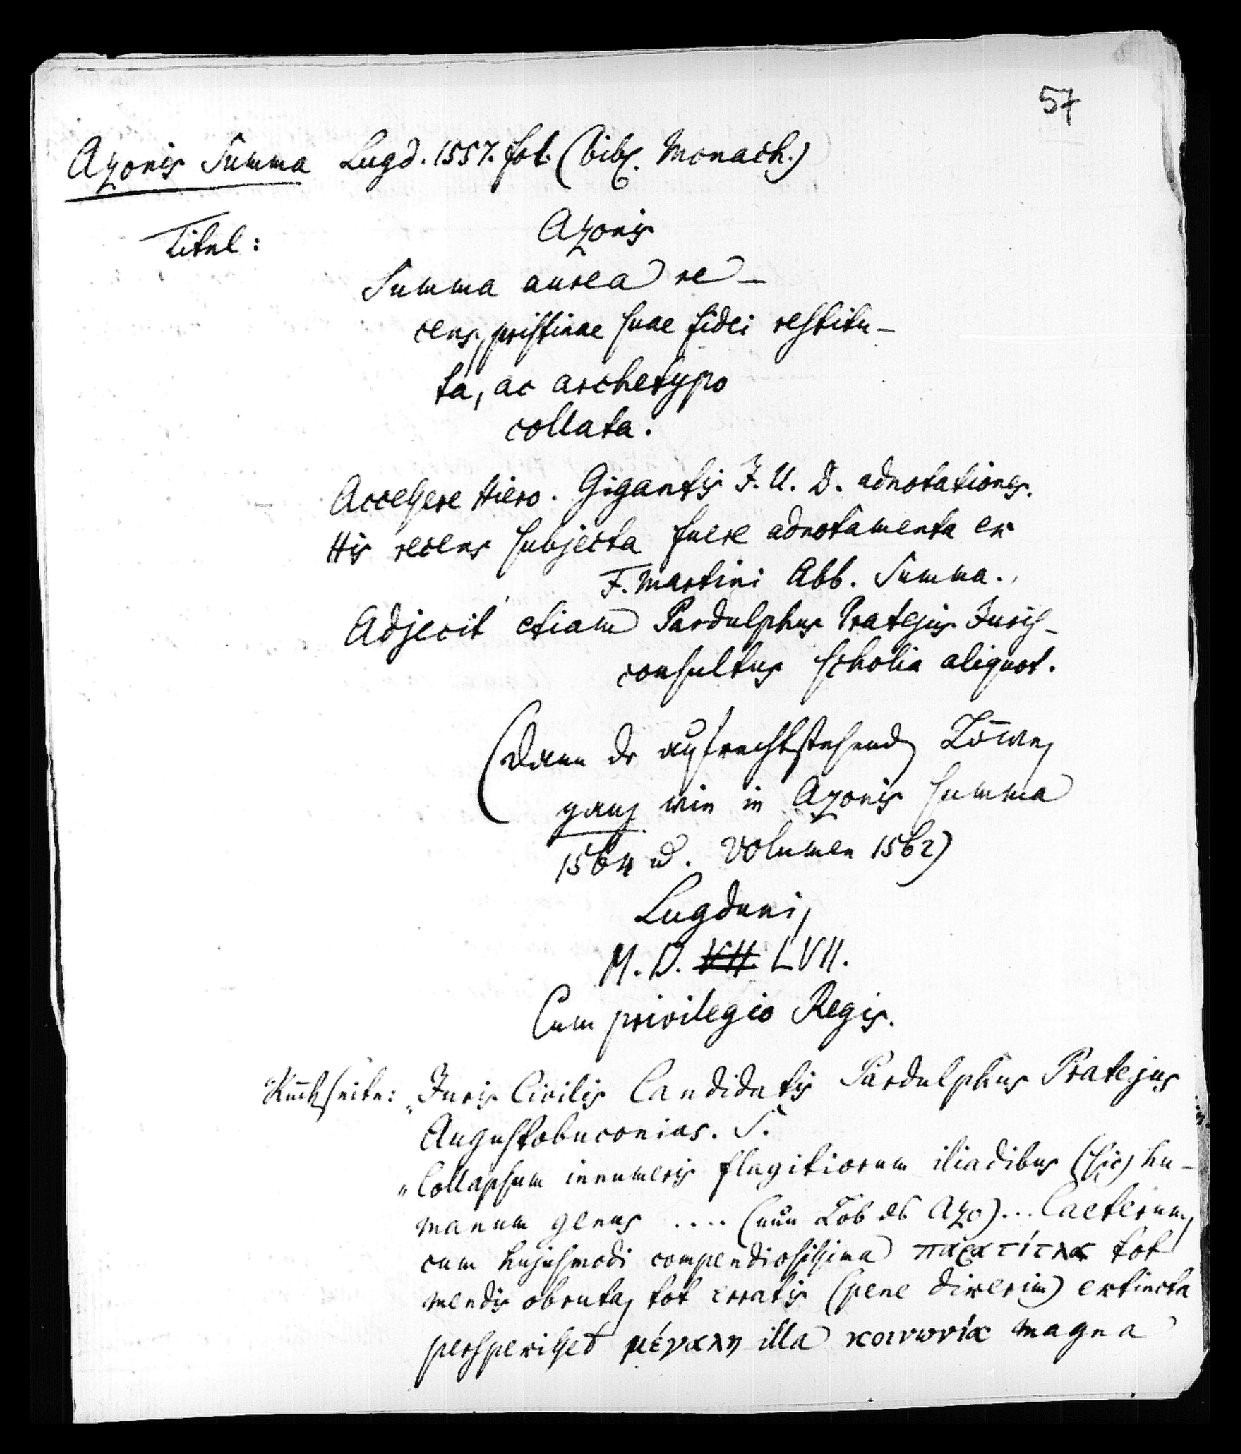 57
Azonis Summa Lugd. 1557. fol. (Bibl. Monach.)
Titel: Azonis
Summa aurea re-
cens, pristinae suae fidei restitu-
ta, ac archetypo
collata.
Accessere Hiero. Gigantis J. U. D. adnotationes.
His recens subjecta fuere adnotamenta ex
F. Martini Abb. Summa.
Adjecit etiam Pardulphus Pratejus Juris-
consultus scholia aliquot.
(Dann der aufrechtstehende Löwe,
ganz wie in Azonis Summa
1564 u. Volumen 1562)
Lugduni,
M. D. LVII.
Cum privilegio Regis.
Rückseite: „Juris Civilis Candidatis Pardulphus Pratejus
Augustobuconias. S.
„Collapsum innumeris flagitiorum iliadibus (sic) hu-
manum genus .... (nun Lob des Azo)... Caeterum,
cum hujusmodi compendiosissima παρατίτλα tot
mendis obruta, tot erratis (pene dixerim) extincta
perspexisset μέγαλη illa κοινωνία magna